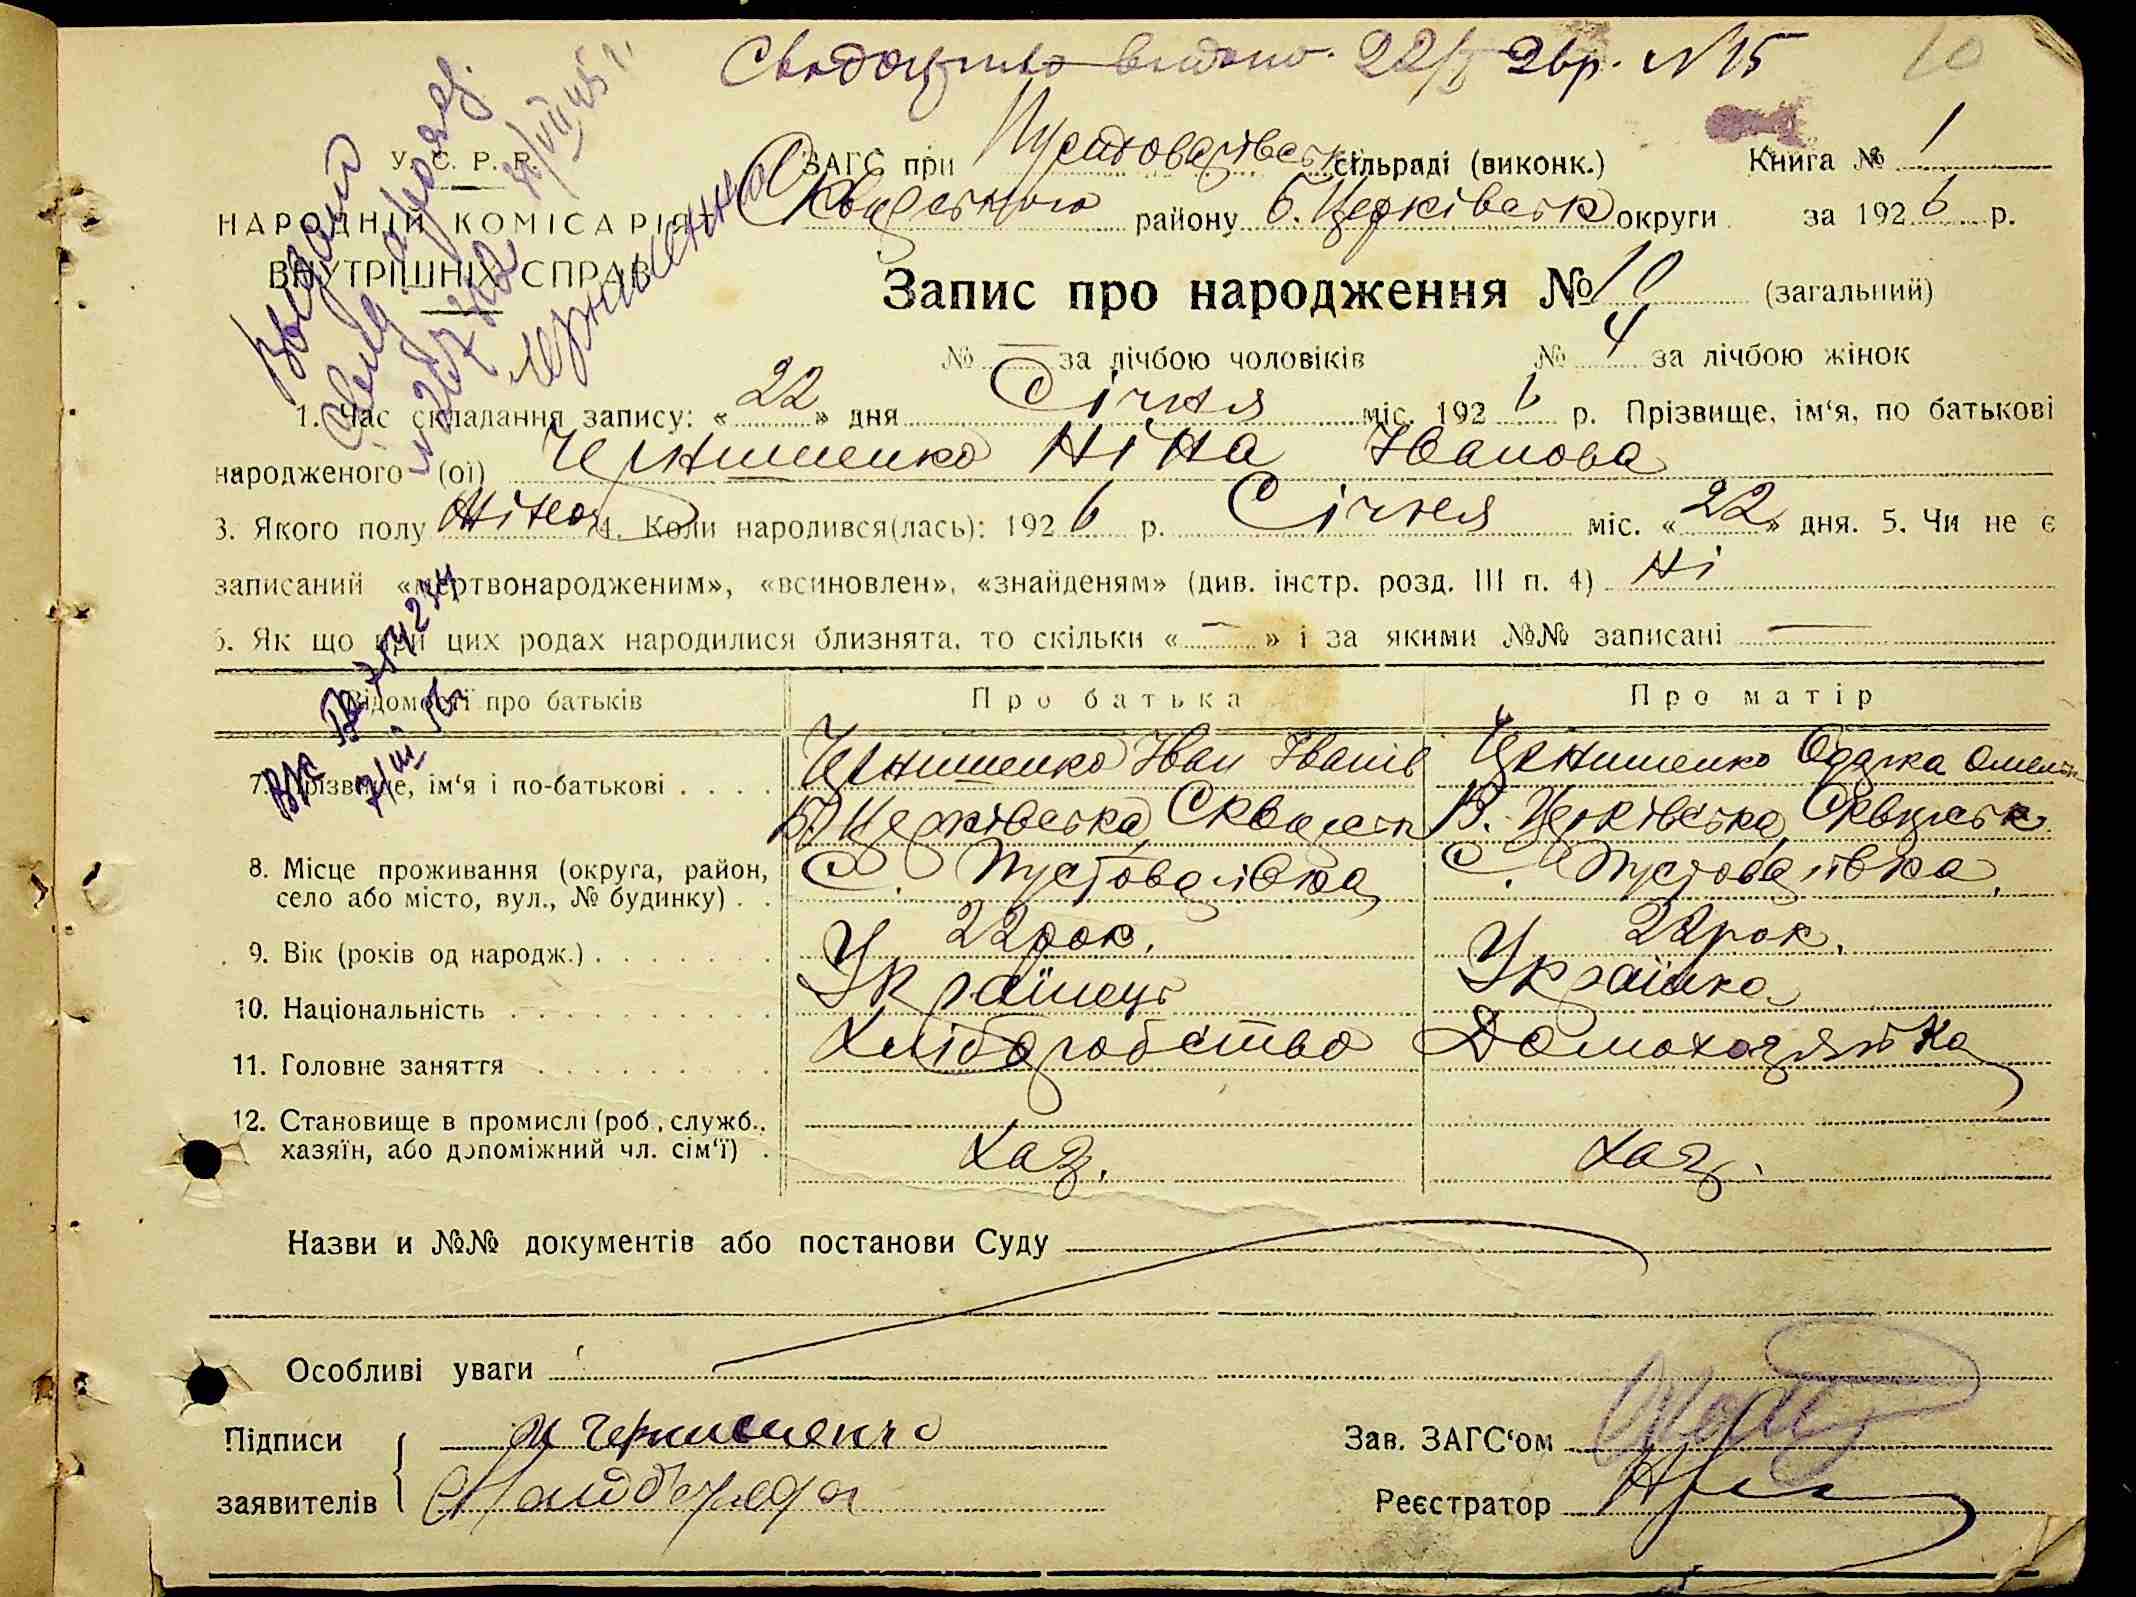 Свидоцтво видано 22/I 26р. № 15
10
У. С. Р. Р.
НАРОДНІЙ КОМІСАРІЯТ
ВНУТРІШНІХ СПРАВ
ЗАГС при Пустоварівськ сільраді (виконк.) Книга № 1
Сквирського району Б. Церківськ округи за 1926 р.
Запис про народження № 10 (загальний)
№ — за лічбою чоловіків № 4 за лічбою жінок
1. Час складання запису: «22» дня Січня міс. 1926 р. Прізвище, ім'я, по батькові
народженого (ої) Чернишенко Ніна Іванова
3. Якого полу Жіноч 4. Коли народився(лась): 1926 р. Січня міс. «22» дня. 5. Чи не є
записаний «мертвонародженим», «всиновлен», «знайденям» (див. інстр. розд. III п. 4) Ні
6. Як що при цих родах народилися близнята, то скільки «—» і за якими №№ записані —
Відомості про батьків Про батька Про матір
7. Прізвище, ім'я і по-батькові Чернишенко Іван Іванів Чернишенко Одарка Омельк
Б. Церківська, Сквирськ Б. Церківська, Сквирськ
8. Місце проживання (округа, район,
село або місто, вул., № будинку) с. Пустоварівка с. Пустоварівка,
9. Вік (років од народж.) 22 рок. 22 рок.
10. Національність Українець Українка
11. Головне заняття Хліборобство Домохозяйка
12. Становище в промислі (роб., служб.,
хазяїн, або допоміжний чл. сім'ї) Хаз. Хаз.
Назви и №№ документів або постанови Суду
Особливі уваги
Підписи И Чернишенко Зав. ЗАГС'ом
заявителів Реєстратор